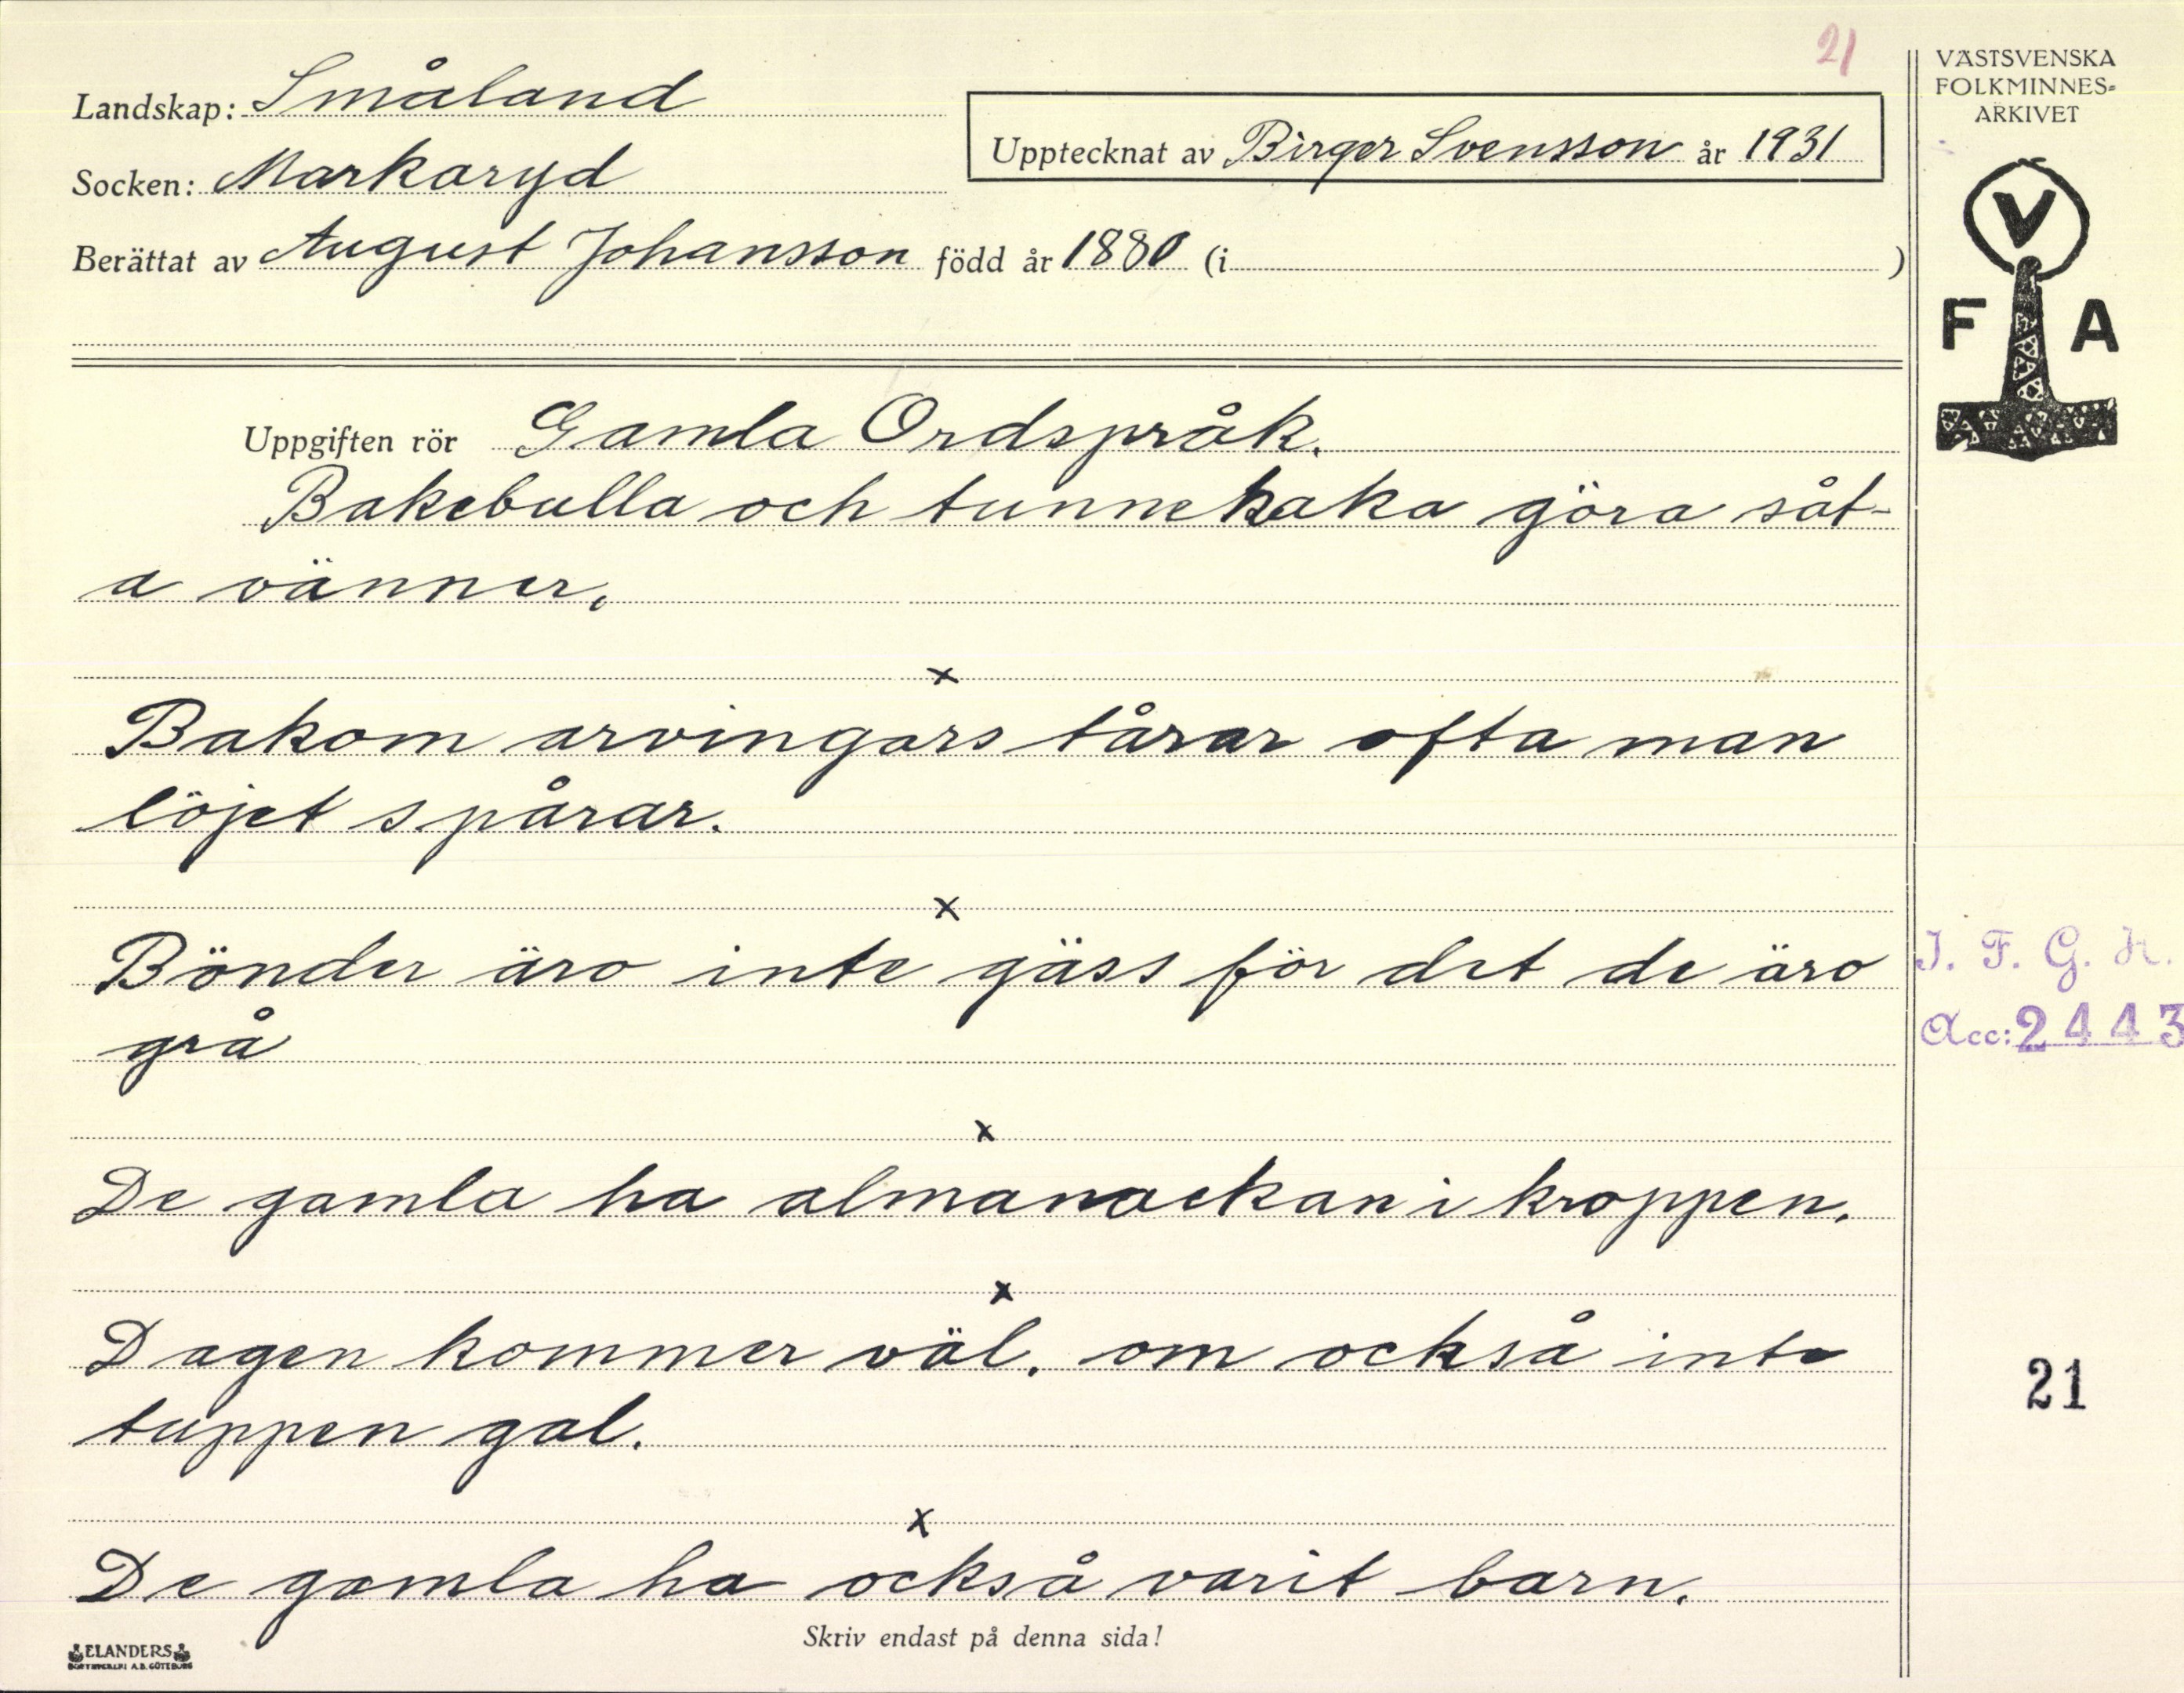 21
VÄSTSVENSKA
FOLKMINNES-
ARKIVET
Landskap: Småland
Upptecknat av Birger Svensson år 1931
Socken: Markaryd
Berättat av August Johansson född år 1880 (i )
V
F A
Uppgiften rör Gamla Ordspråk.
Bakebulla och tunnekaka göra såt-
a vänner.
x
Bakom arvingars tårar ofta man
löjet spårar.
x
Bönder äro inte gäss för det de äro
grå
I. F. G. H.
Acc: 2443
x
De gamla ha almanackan i kroppen.
x
Dagen kommer väl, om också inte
tuppen gal.
21
x
De gamla ha också varit barn.
Skriv endast på denna sida!
ELANDERS
A.B. GÖTEBORG